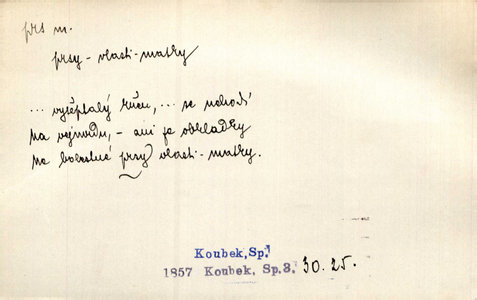 prs m.
prsy - vlasti - matky
se nehodí
na vojvodu, - ani je obkladky
na bolestné prsy vlasti - matky.
Koubek, Sp.
1857 Koubek, Sp.3. 30. 25.